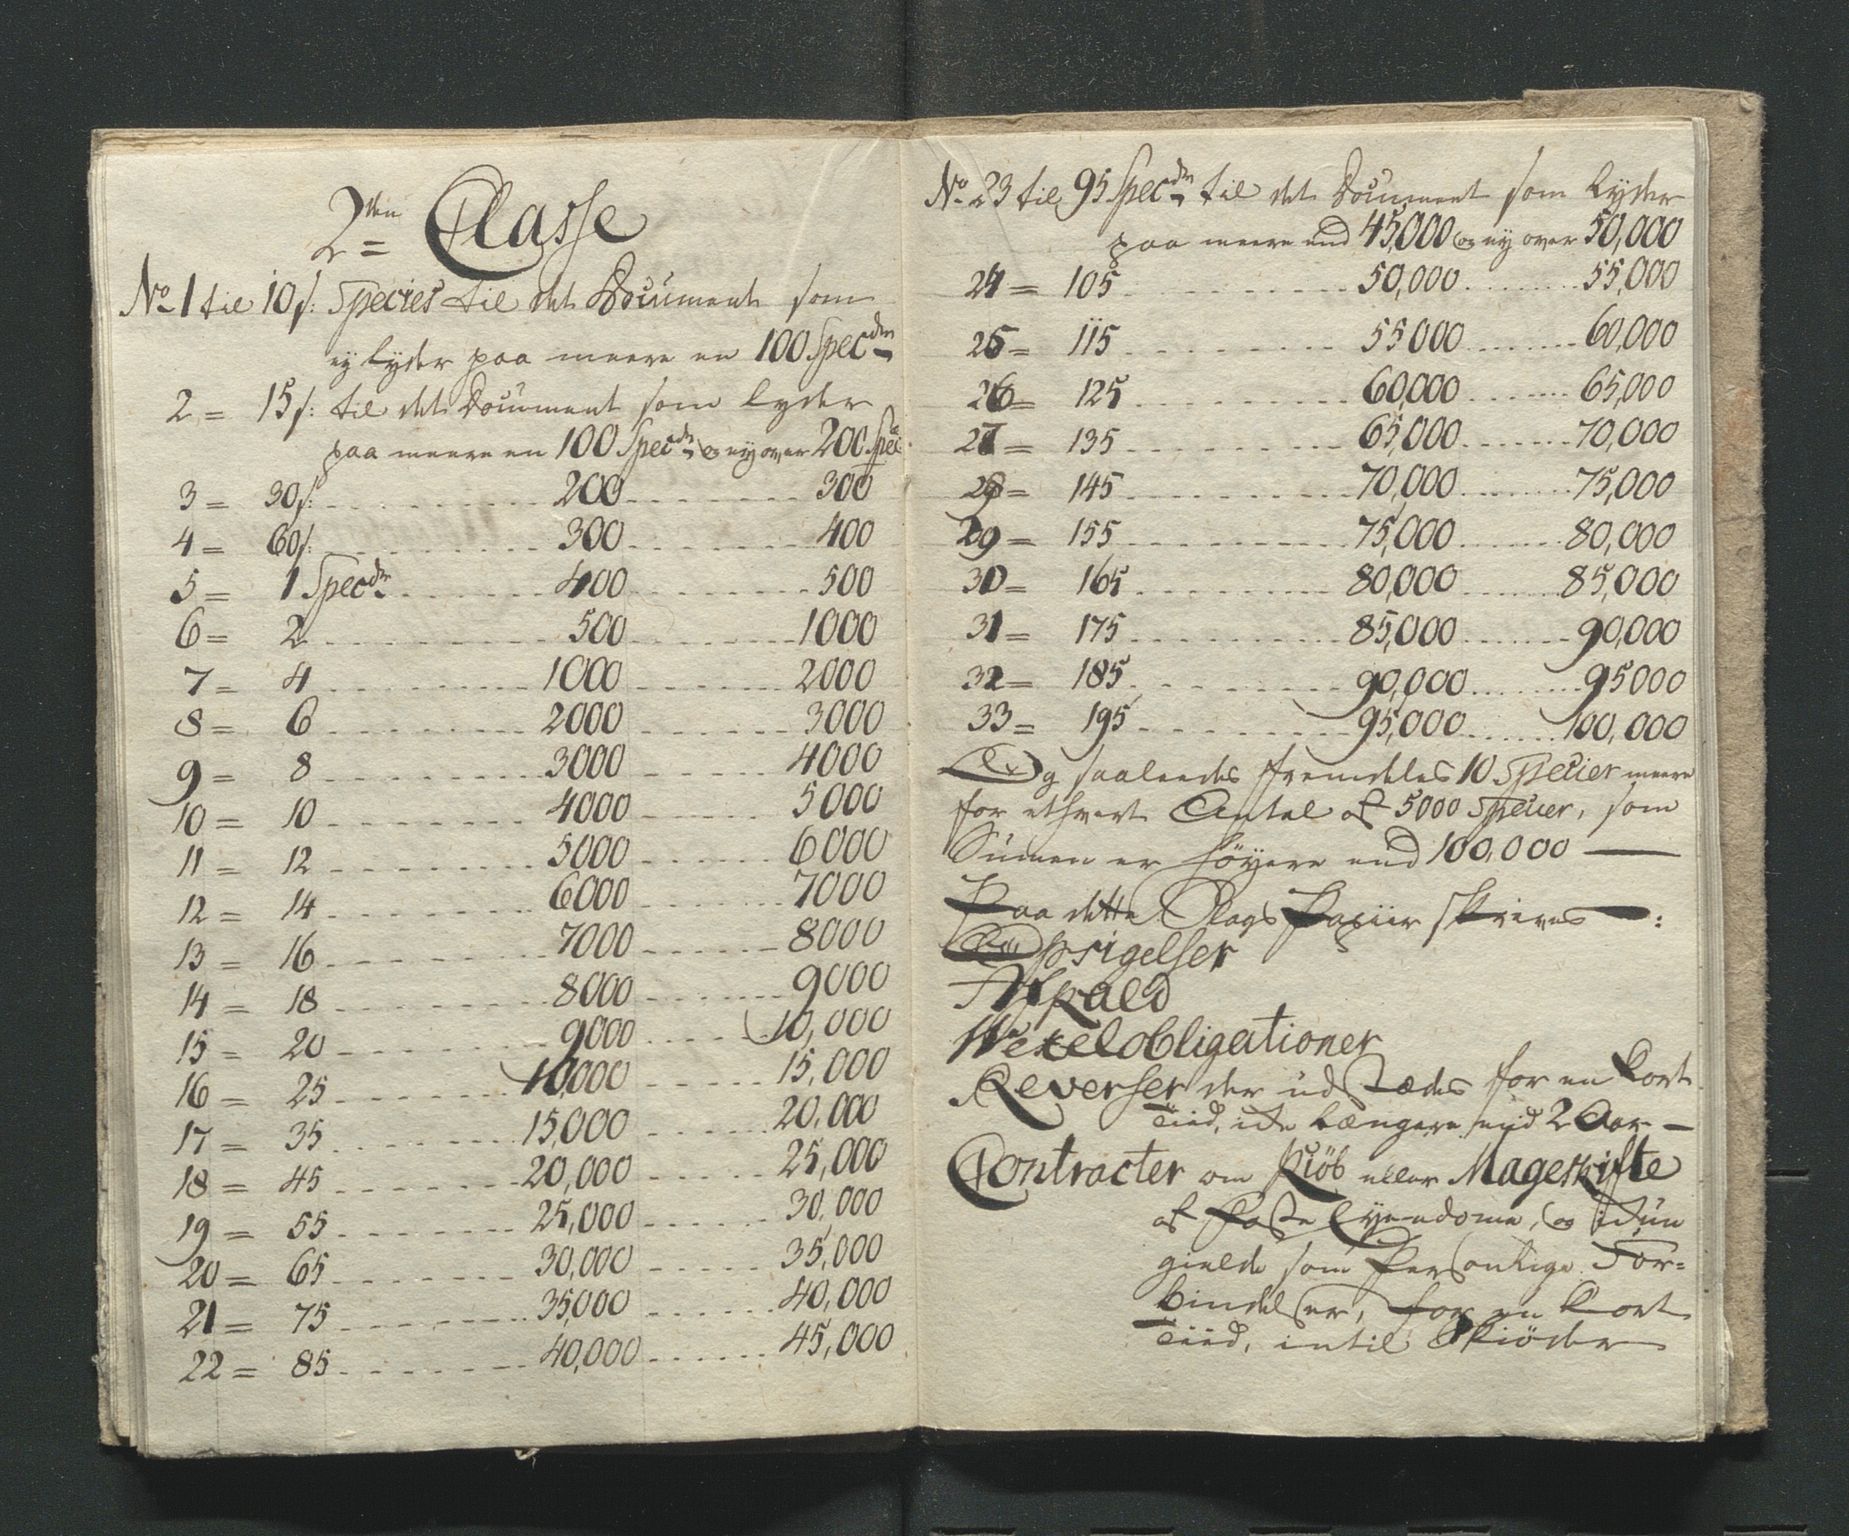 2den Classe
No 1 til 10 s: Species til det Document som
ey lyder paa meere en 100 Specdr
2 = 15 s: til det Document som lyder
paa meere en 100 Specdr og ey over 200 Spec
3 = 30 s: 200 300
4 = 60 s: 300 400
5 = 1 Specdr 400 500
6 = 2 500 1000
7 = 4 1000 2000
8 = 6 2000 3000
9 = 8 3000 4000
10 = 10 4000 5000
11 = 12 5000 6000
12 = 14 6000 7000
13 = 16 7000 8000
14 = 18 8000 9000
15 = 20 9000 10,000
16 = 25 10,000 15,000
17 = 35 15,000 20,000
18 = 45 20,000 25,000
19 = 55 25,000 30,000
20 = 65 30,000 35,000
21 = 75 35,000 40,000
22 = 85 40,000 45,000
No 23 til 95 Specdr til det Document som lyder
paa meere end 45,000 og ey over 50,000
24 = 105 50,000 55,000
25 = 115 55000 60,000
26 = 125 60,000 65,000
27 = 135 65,000 70,000
28 = 145 70,000 75,000
29 = 155 75,000 80,000
30 = 165 80,000 85,000
31 = 175 85,000 90,000
32 = 185 90,000 95000
33 = 195 95,000 100,000
Og saaleedes fremdeles 10 Specier meere
for ethvert Antal af 5000 Specier, som
Sumen er høyere end 100,000 —
Paa dette Slags Papiir skrives :
Opsigelser
Afkald
Wexelobligationer
Reverser der udstædes for en kort
Tiid, icke længere end 2 Aar —
Contracter om Kiøb eller Mageskifte
af faste Eyendome, og
gielde som Personlige For=
bindelser, for en kort
Tiid, intil Skiøder